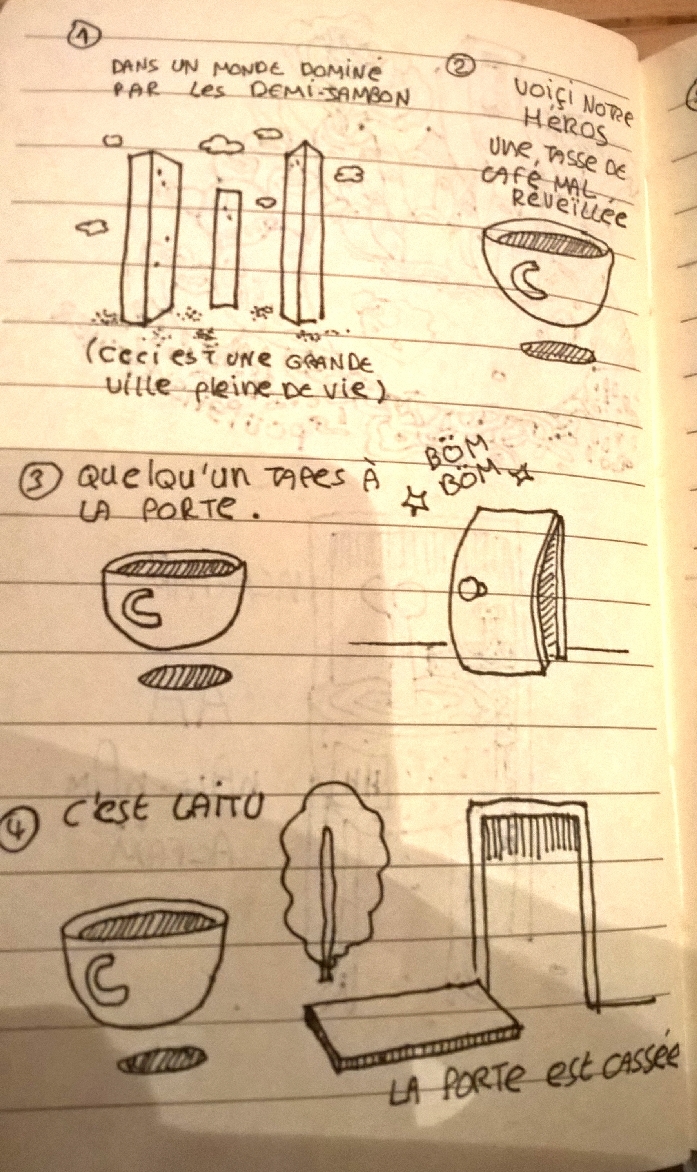 1
DANS UN MONDE DOMINÉ
PAR Les DEMI-JAMBON
(Ceci est UNE GRANDE
Ville pleine De vie)
2
VOIÇI NOTRE
HÉROS
UNE TASSE DE
CAFÉ MAL
RÉVEILLÉE
3 QUelqu'un TAPes À
LA PORTe.
BÖM
BÖM
4 C'est LAITU
LA PORTe est CASSÉe